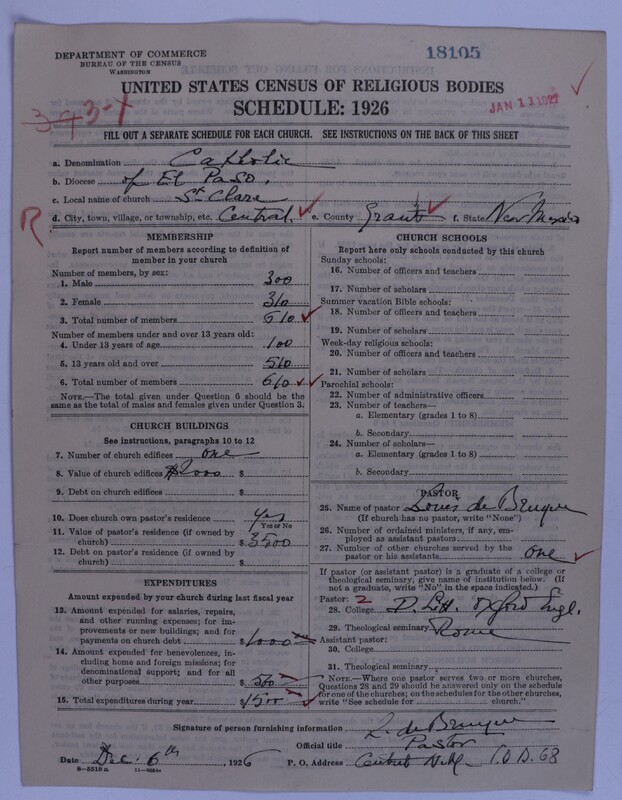 DEPARTMENT OF COMMERCE
BUREAU OF THE CENSUS
WASHINGTON
18105
UNITED STATES CENSUS OF RELIGIOUS BODIES
SCHEDULE: 1926
JAN 11 1927
343-1
FILL OUT A SEPARATE SCHEDULE FOR EACH CHURCH. SEE INSTRUCTIONS ON THE BACK OF THIS SHEET
a. Denomination Catholic
b. Diocese of El Paso.
c. Local name of church St Clare
R
d. City, town, village, or township, etc. Central. e. County Grant f. State New Mexico
MEMBERSHIP
Report number of members according to definition of
member in your church
Number of members, by sex:
1. Male 300
2. Female 310
3. Total number of members 610
Number of members under and over 13 years old:
4. Under 13 years of age 100
5. 13 years old and over 510
6. Total number of members 610
NOTE.—The total given under Question 6 should be
same as the total of males and females given under Question 3.
CHURCH BUILDINGS
See instructions, paragraphs 10 to 12
7. Number of church edifices one
8. Value of church edifices $2000 $
9. Debt on church edifices $
10. Does church own pastor's residence Yes
Yes or No
11. Value of pastor's residence (if owned by
church) $ 3500
12. Debt on pastor's residence (if owned by
church) $
EXPENDITURES
Amount expended by your church during last fiscal year
13. Amount expended for salaries, repairs,
and other running expenses; for im-
provements or new buildings; and for
payments on church debt $1000
14. Amount expended for benevolences, in-
cluding home and foreign missions; for
denominational support; and for all
other purposes $ 500
15. Total expenditures during year $1500
CHURCH SCHOOLS
Report here only schools conducted by this church
Sunday schools:
16. Number of officers and teachers
17. Number of scholars
Summer vacation Bible schools:
18. Number of officers and teachers
19. Number of scholars
Week-day religious schools:
20. Number of officers and teachers
21. Number of scholars
Parochial schools:
22. Number of administrative officers
23. Number of teachers—
a. Elementary (grades 1 to 8)
b. Secondary
24. Number of scholars—
a. Elementary (grades 1 to 8)
b. Secondary
PASTOR
25. Name of pastor Louis de Bruque
(If church has no pastor, write "None")
26. Number of ordained ministers, if any, em-
ployed as assistant pastors
27. Number of other churches served by the
pastor or his assistants one
If pastor (or assistant pastor) is a graduate of a college or
theological seminary, give name of institution below. (If
not a graduate, write "No" in the space indicated.)
Pastor: 2
28. College D. Litt. Oxford Engl.
29. Theological seminary Rome
Assistant pastor:
30. College
31. Theological seminary
NOTE.—Where one pastor serves two or more churches,
Questions 28 and 29 should be answered only on the schedule
for one of the churches; on the schedules for the other churches,
write "See schedule for church."
Signature of person furnishing information L. de Bruque
Official title Pastor
Date Dec. 6th, 1926 P. O. Address Central N.M. P.O.B. 68
8-5518 a